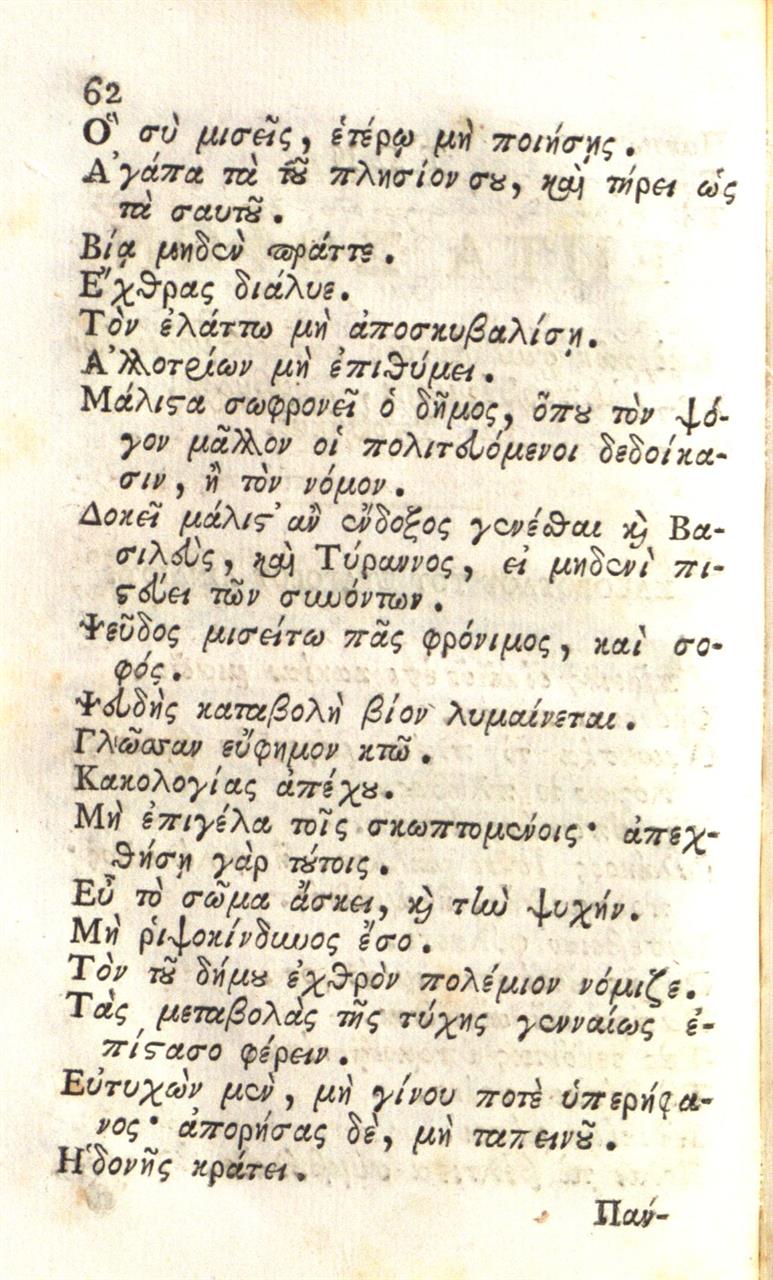 62
Ὃ σὺ μισεῖς, ἑτέρῳ μὴ ποιήσῃς.
Ἀγάπα τὰ τοῦ πλησίον σου, καὶ τήρει ὡς
τὰ σαυτοῦ.
Βίᾳ μηδὲν πράττε.
Ἔχθρας διάλυε.
Τὸν ἐλάττω μὴ ἀποσκυβαλίσῃ.
Ἀλλοτρίων μὴ ἐπιθύμει.
Μάλιστα σωφρονεῖ ὁ δῆμος, ὅπου τὸν ψό-
γον μᾶλλον οἱ πολιτευόμενοι δεδοίκα-
σιν, ἢ τὸν νόμον.
Δοκεῖ μάλιστ' ἂν ἔνδοξος γενέσθαι καὶ Βα-
σιλεὺς, καὶ Τύραννος, εἰ μηδενὶ πι-
στεύει τῶν συνόντων.
Ψεῦδος μισείτω πᾶς φρόνιμος, καὶ σο-
φός.
Ψευδὴς καταβολὴ βίον λυμαίνεται.
Γλῶσσαν εὔφημον κτῶ.
Κακολογίας ἀπέχου.
Μὴ ἐπιγέλα τοῖς σκωπτομένοις· ἀπεχ-
θήσῃ γὰρ τούτοις.
Εὖ τὸ σῶμα ἄσκει, καὶ τὴν ψυχήν.
Μὴ ῥιψοκίνδυνος ἔσο.
Τὸν τοῦ δήμου ἐχθρὸν πολέμιον νόμιζε.
Τὰς μεταβολὰς τῆς τύχης γενναίως ἐ-
πίστασο φέρειν.
Εὐτυχὼν μὲν, μὴ γίνου ποτὲ ὑπερήφα-
νος· ἀπορήσας δὲ, μὴ ταπεινοῦ.
Ἡδονῆς κράτει.
Παν-